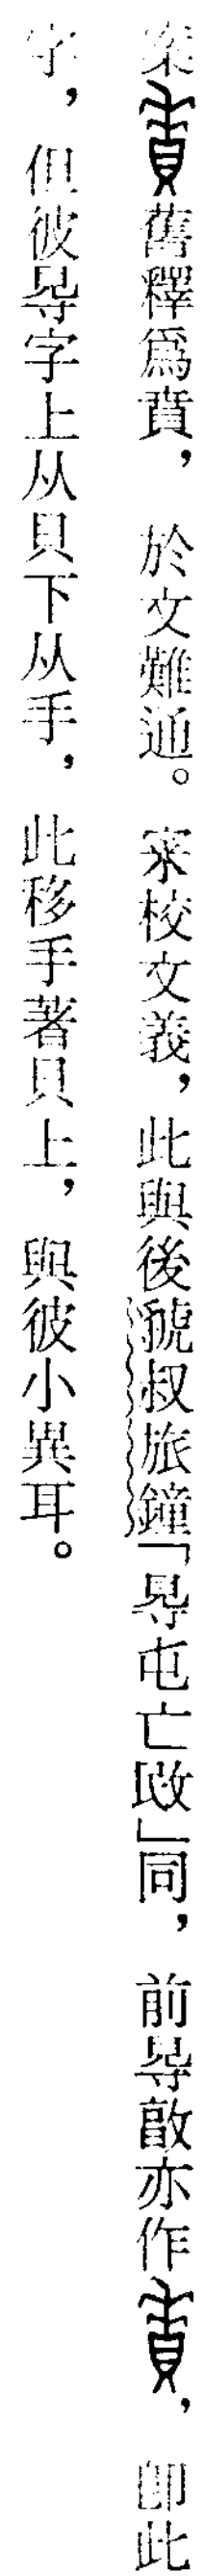 案舊釋爲賁，於文難通。宷校文義，此與後虢叔旅鐘「㝵屯亡敃」同，前㝵敢亦作，卽此
字，但彼㝵字上从貝下从手，此移手著貝上，與彼小異耳。